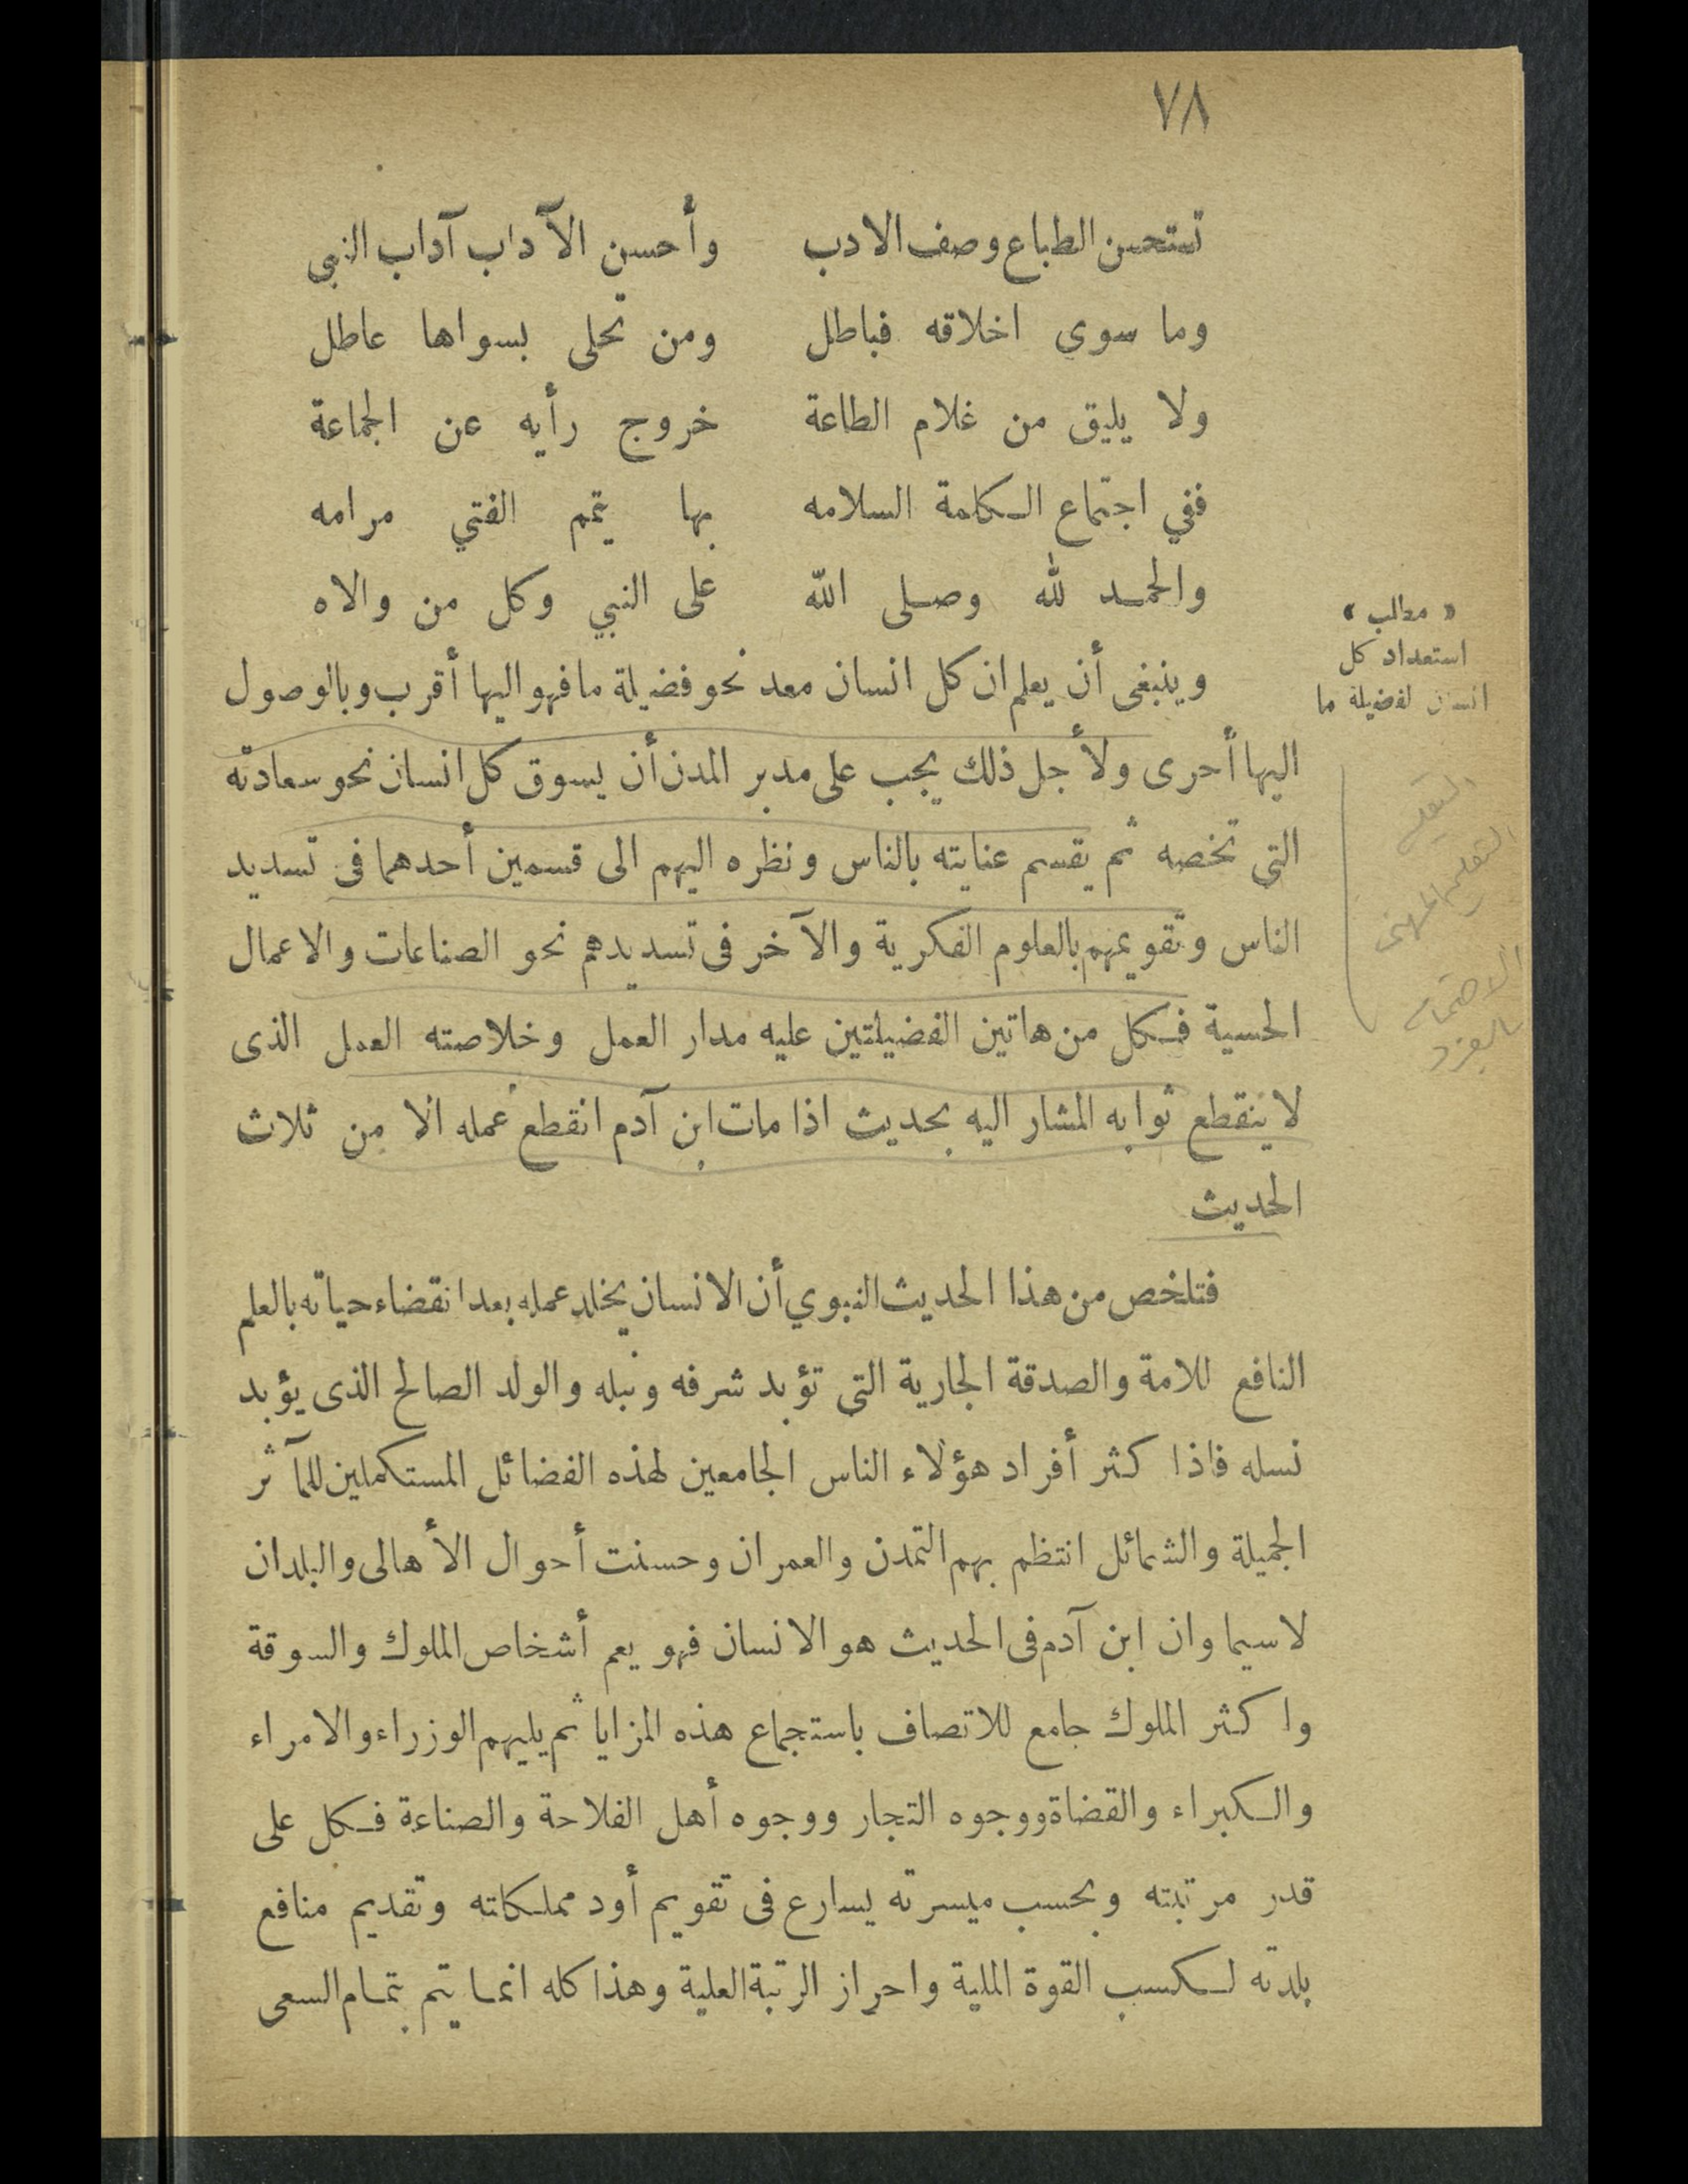 ٧٨
تستحسن الطباع وصف الادب وأحسن الآداب آداب النبى
وما سوى اخلاقه فباطل ومن تحلى بسواها عاطل
ولا يليق من غلام الطاعة خروج رأيه عن الجماعة
ففي اجتماع الكلمة السلامه بها يتمم الفتي مرامه
والحمد لله وصلى الله على النبي وكل من والاه
« مطلب »
استعداد كل
انسان لفضيلة ما
وينبغى أن يعلم ان كل انسان معد نحو فضيلة ما فهو اليها أقرب وبالوصول
اليها أحرى ولأجل ذلك يجب على مدبر المدن أن يسوق كل انسان نحو سعادته
التى تخصه ثم يقسم عنايته بالناس ونظره اليهم الى قسمين أحدهما فى تسديد
الناس وتقويمهم بالعلوم الفكرية والآخر فى تسديدهم نحو الصناعات والاعمال
الحسية فكل من هاتين الفضيلتين عليه مدار العمل وخلاصته العمل الذى
لا ينقطع ثوابه المشار اليه بحديث اذا مات ابن آدم انقطع عمله الا من ثلاث
الحديث
التعليم المهنى
الاهتمام
بالفرد
فتلخص من هذا الحديث النبوي أن الانسان يخلد عمله بعد انقضاء حياته بالعلم
النافع للامة والصدقة الجارية التى تؤبد شرفه ونبله والولد الصالح الذى يؤبد
نسله فاذا كثر أفراد هؤلاء الناس الجامعين لهذه الفضائل المستكملين للمآثر
الجميلة والشمائل انتظم بهم التمدن والعمران وحسنت أحوال الأهالى والبلدان
لاسيما وان ابن آدم فى الحديث هو الانسان فهو يعم أشخاص الملوك والسوقة
واكثر الملوك جامع للاتصاف باستجماع هذه المزايا ثم يليهم الوزراء والامراء
والكبراء والقضاة ووجوه التجار ووجوه أهل الفلاحة والصناعة فكل على
قدر مرتبته وبحسب ميسرته يسارع فى تقويم أود مملكاته وتقديم منافع
بلدته لكسب القوة الملية واحراز الرتبة العلية وهذا كله انما يتم بتمام السعى